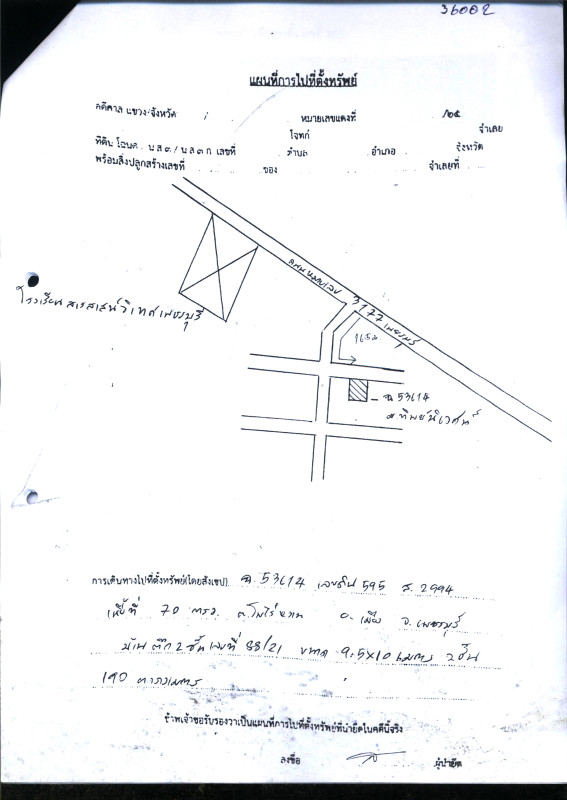 36002
แผนที่การไปที่ตั้งทรัพย์
คดีศาล แขวง/จังหวัด หมายเลขแดงที่ /25
โจทก์ จำเลย
ที่ดิน โฉนด น.ส.๓/น.ส.๓ ก. เลขที่ ตำบล อำเภอ จังหวัด
พร้อมสิ่งปลูกสร้างเลขที่ ของ จำเลยที่
ถนนหมายเลข 3177 เพชรบุรี
โรงเรียนสารสาสน์วิเทศเพชรบุรี
ฉ. 53614
ทิพย์นิเวศน์
การเดินทางไปที่ตั้งทรัพย์(โดยสังเขป) ฉ. 53614 เลขดิน 595 ส. 2994
เนื้อที่ 70 ตรว. ต.โพไร่หวาน อ.เมือง จ.เพชรบุรี
บ้านตึก 2 ชั้น เลขที่ 88/21 ขนาด 9.5x10 เมตร 2 ชั้น
190 ตารางเมตร
ข้าพเจ้าขอรับรองว่าเป็นแผนที่การไปที่ตั้งทรัพย์ที่นำยึดในคดีนี้จริง
ลงชื่อ ผู้นำยึด